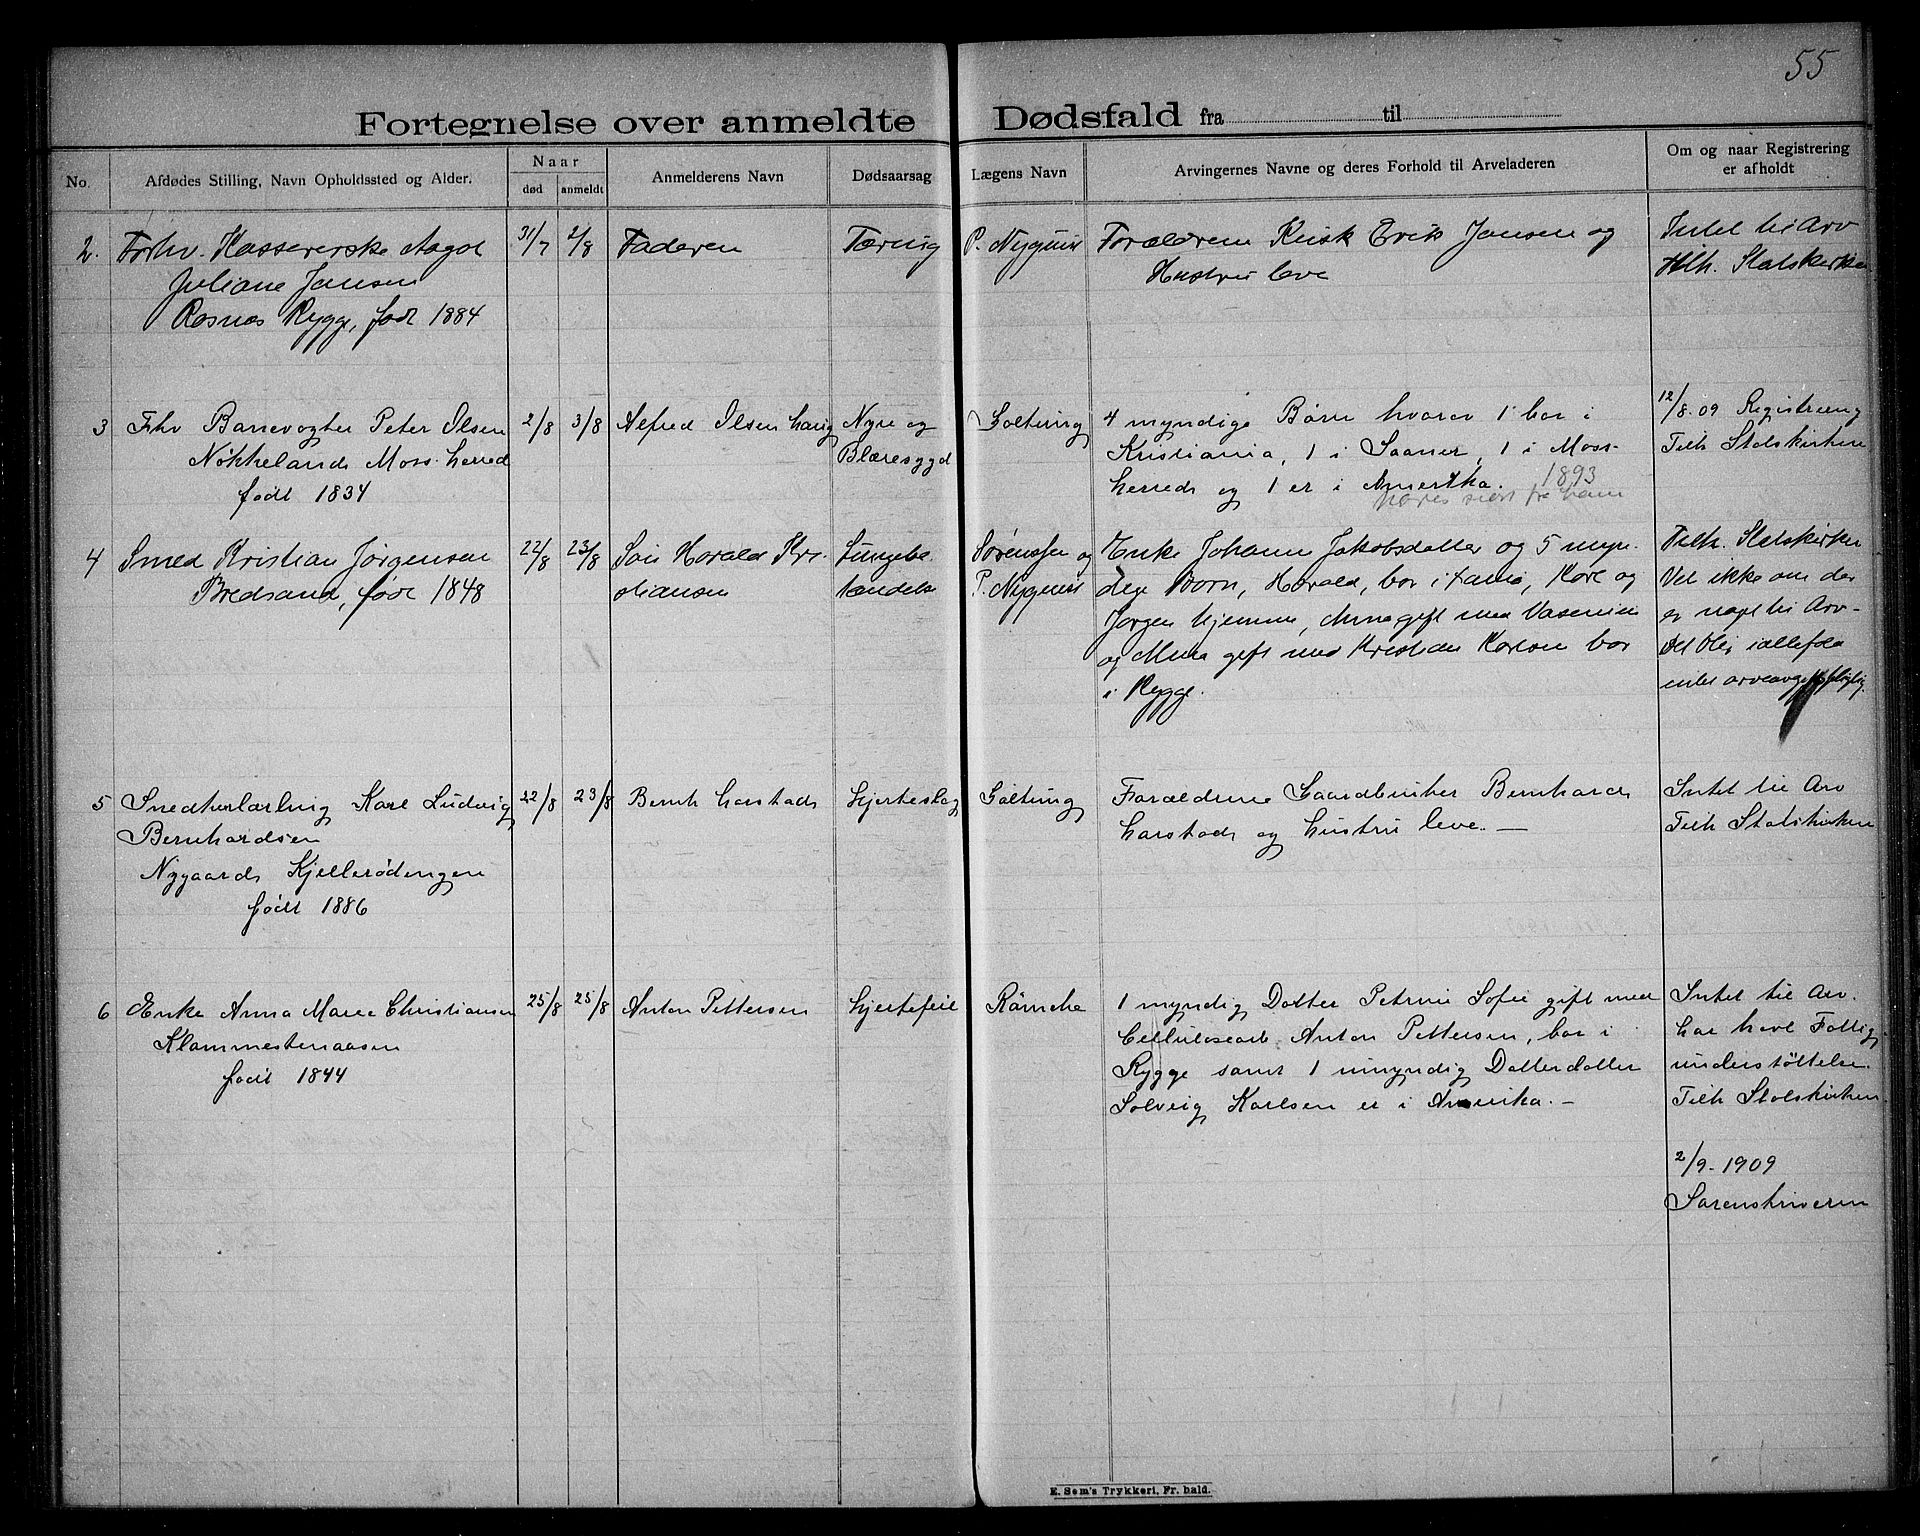 55
Fortegnelse over anmeldte Dødsfald fra til
No.
Afdødes Stilling, Navn Opholdssted og Alder.
Naar
død anmeldt
Anmelderens Navn
Dødsaarsag
Lægens Navn
Arvingernes Navne og deres Forhold til Arveladeren
Om og naar Registrering
er afholdt
2. Forhv. Kassererske Aagot
Juliane Jansen
Rosnes Rygge, født 1884
31/7 2/8 Faderen Tæring
P. Nyquist
Forældrene Kusk Erik Jansen og
Hustru leve
Intet til Arv
Tilh. Statskirken
3 Fhv Banevogter Peter Olsen
Nøkkeland Moss herred
født 1834
2/8 3/8 Alfred Olsen
Nyre og
Blæresygd
Goltung
4 myndige Børn hvorav 1 bor i
Kristiania, 1 i Saaner, 1 i Moss
herred og 1 er i Amerika. 1893
12/8-09 Registrering
Tilh Statskirken
4 Smed Kristian Jørgensen
Bredsand, født 1848
22/8 23/8 Søn Harald Kri-
stiansen
Lungebe-
tændelse
Sørenssen og
P. Nyquist
Enke Johanne Jakobsdatter og 5 myn-
dige Børn, Harald, bor i Kare og
Jørgen hjemme, gift med
og gift med Kristian Karlsen bor
i Rygge.
Tilh. Statskirken
Vet ikke om der
er noget til Arv-
Det blir iallefald
intet arveavgiftspligtig.
5 Snedkerlærling Karl Ludvig
Bernhardsen
Nygaard Kjellerødengen
født 1886
22/8 23/8 Bernh Harstad Hjerteslag
Goltung
Forældrene Gaardbruker Bernhard
Harstad og hustru leve. —
Intet til Arv
Tilh Statskirken
6 Enke Anna Marie Christiansen
Klommestenaasen
født 1844
25/8 25/8 Anton Pettersen Hjertefeil
Römcke
1 myndig Datter Petrine Sofie gift med
Cellulosearb Anton Pettersen, bor i
Rygge samt 1 umyndig Datterdatter
Solveig Karlsen er i Amerika. —
Intet til Arv.
har havt Fattig
understøttelse
Tilh Statskirken
2/9-1909
Sorenskriveren
E. Sem's Trykkeri, Fr. hald.